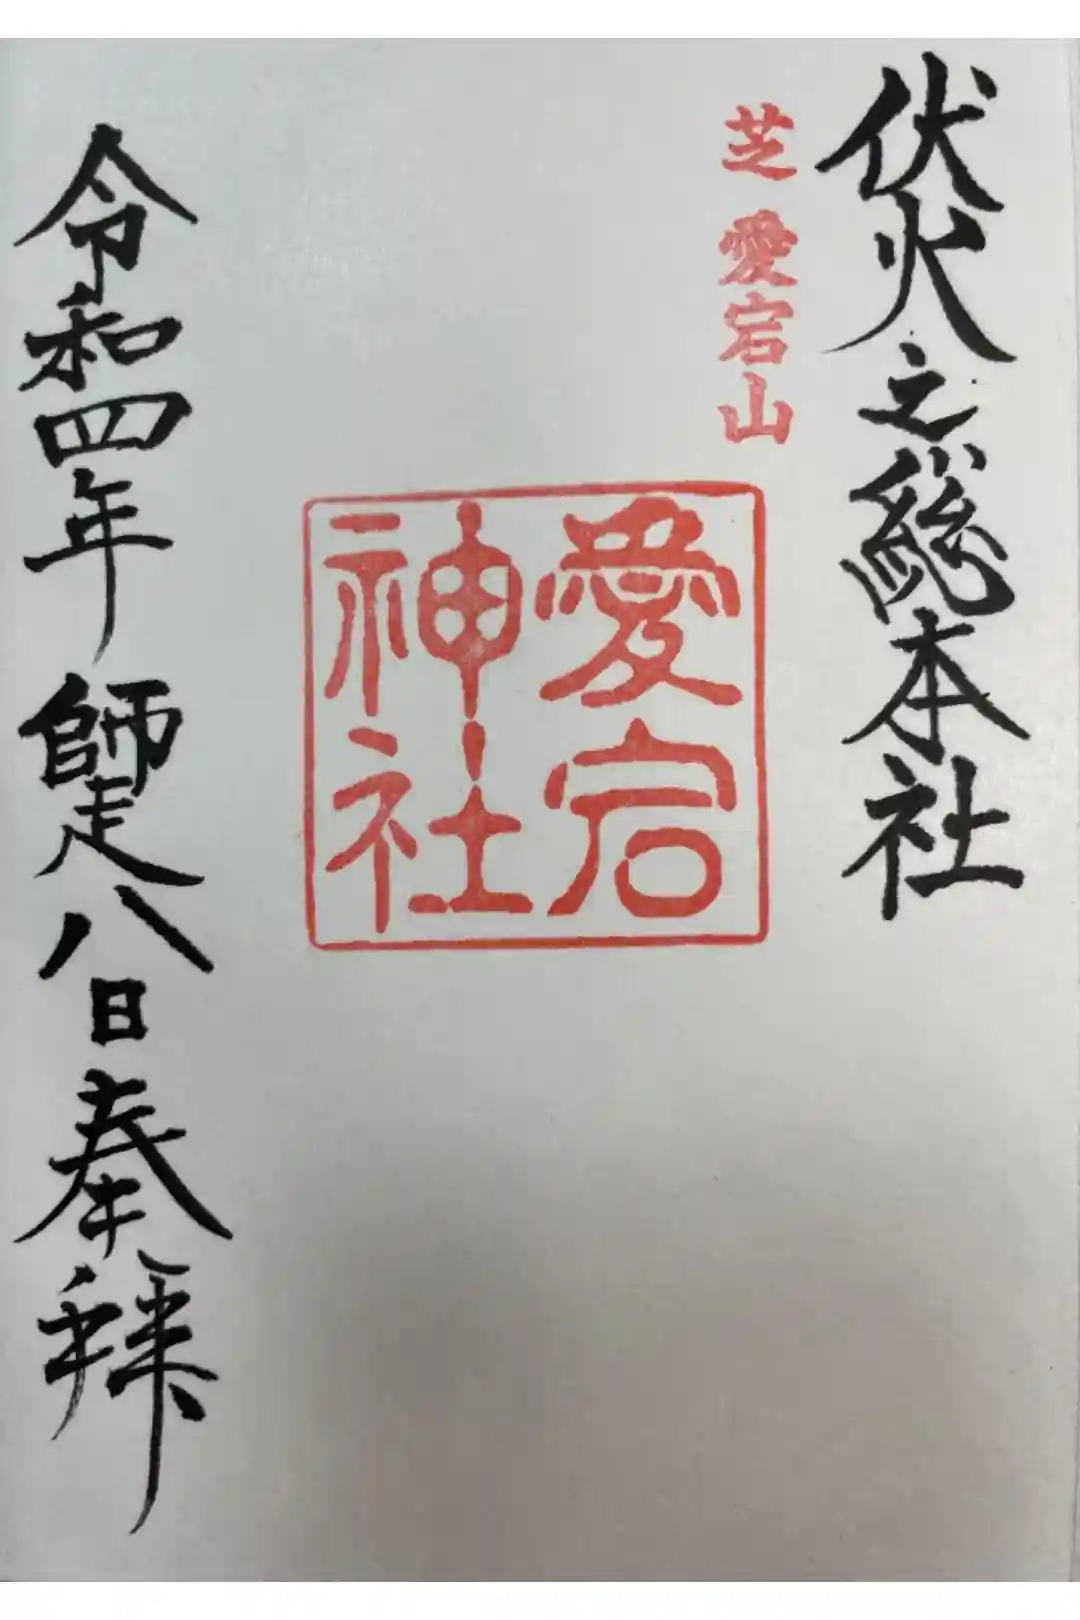 伏火之総本社
芝 愛宕山
愛宕
神社
令和四年 師走八日奉拝